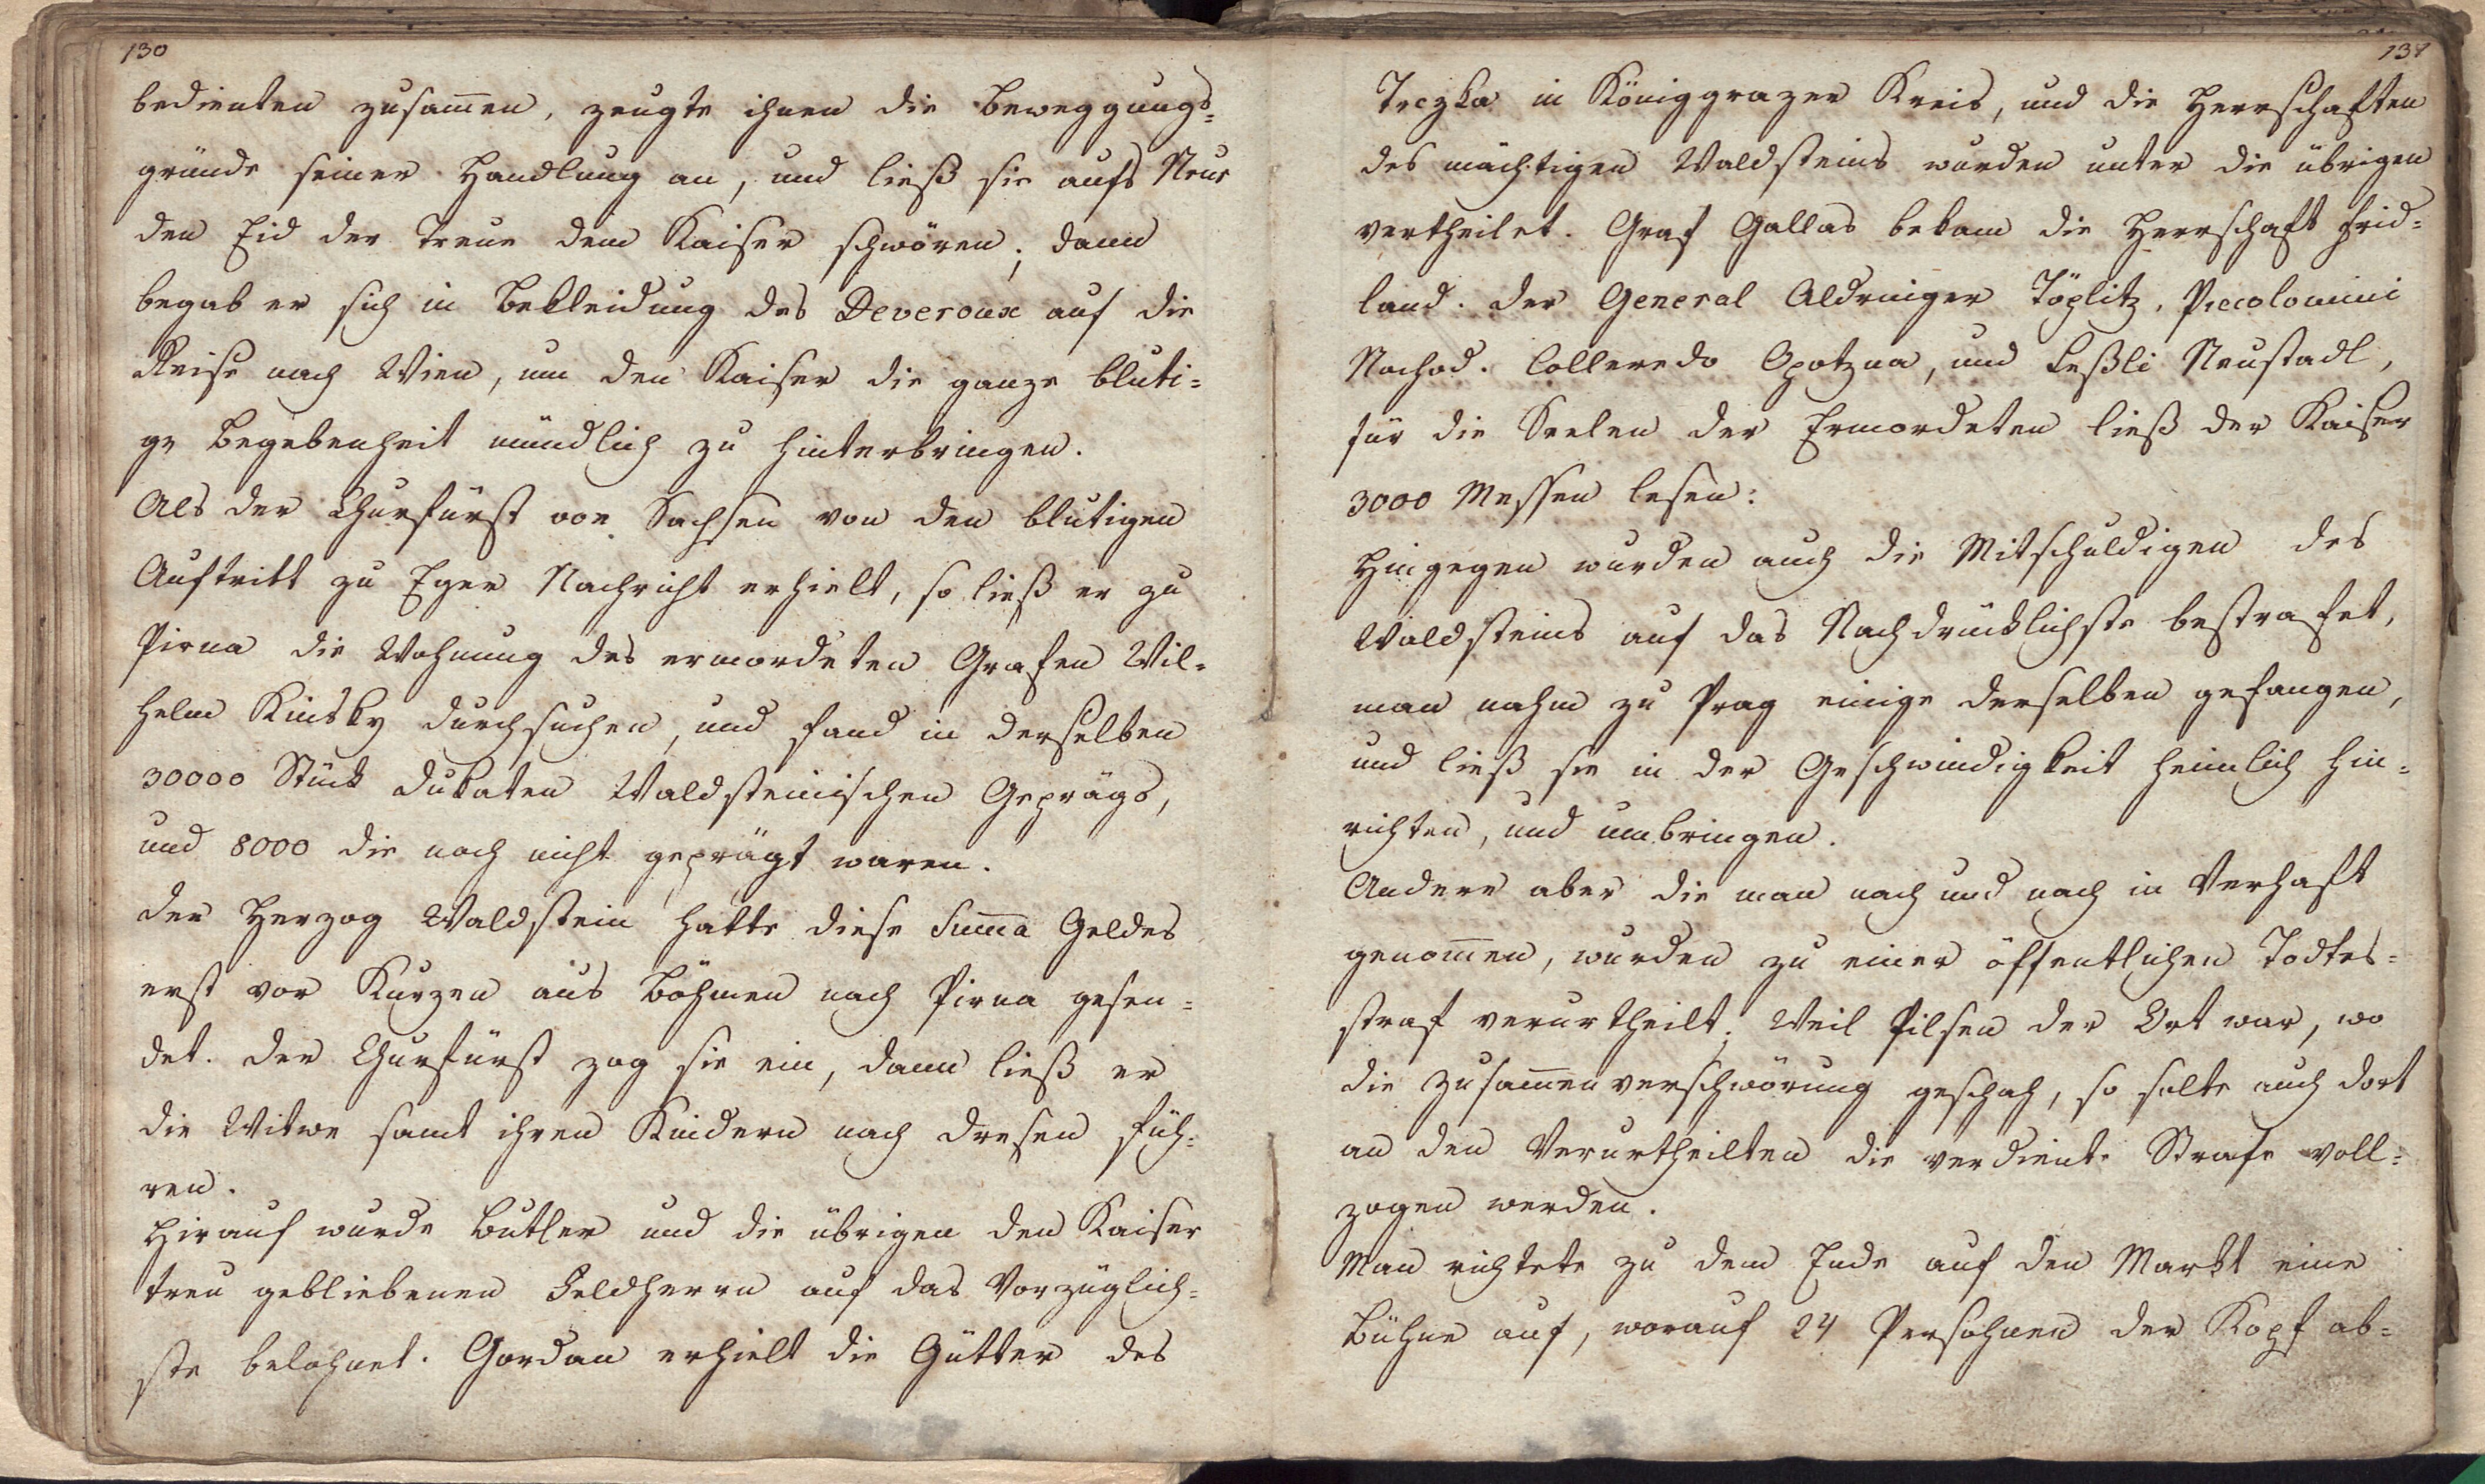 130
bedienten zusam̄en, zeugte ihnen die Beweggungs=
gründe seiner Handlung an, und ließ sie aufs Neue
den Eid der Treue dem Kaiser schwören; dann
begab er sich in Bekleidung des Deveroux auf die
Reise nach Wien, um den Kaiser die ganze bluti=
ge Begebenheit mündlich zu hinterbringen.
Als der Churfürst von Sachsen von den blutigen
Auftritt zu Eger Nachricht erhielt, so ließ er zu
Pirna die Wohnung des ermordeten Grafen Wil=
helm Kinsky durchsuchen, und fand in derselben
30000 Stück Dukaten Waldsteinischen Gepräges,
und 8000 die noch nicht geprägt waren.
Der Herzog Waldstein hatte diese Sum̄a Geldes
erst vor Kurzen aus Böhmen nach Pirna gesen=
det. Der Churfürst zog sie ein, dann ließ er
die Witwe samt ihren Kindern nach Dresen füh=
ren.
Hirauf wurde Butler und die übrigen den Kaiser
treu gebliebenen Feldherrn auf das Vorzüglich=
ste belohnet. Gordan erhielt die Gütter des
131
Trczka in Königgrazer Kreis, und die Herrschaften
des mächtigen Waldsteins wurden unter die übrigen
vertheilet. Graf Gallas bekam die Herrschaft Frid=
land. Der General Aldringer Töplitz, Piccolomini
Nachod. Colleredo Opotzna, und Leßli Neustadl,
für die Seelen der Ermordeten ließ der Kaiser
3000 Messen lesen:
Hingegen wurden auch die Mitschuldigen des
Waldsteins auf das Nachdrücklichste bestrafet,
man nahm zu Prag einige derselben gefangen,
und ließ sie in der Geschwindigkeit heimlich hin=
richten, und umbringen.
Andere aber die man nach und nach in Verhaft
genom̄en, wurden zu einer öffentlichen Todtes=
straf verurtheilt; Weil Pilsen der Ort war, wo
die Zusam̄enverschwörung geschah, so solte auch dort
an den Verurtheilten die verdiente Strafe voll=
zogen werden.
Man richtete zu dem Ende auf den Markt eine
Bühne auf, worauf 24 Persohnen der Kopf ab=